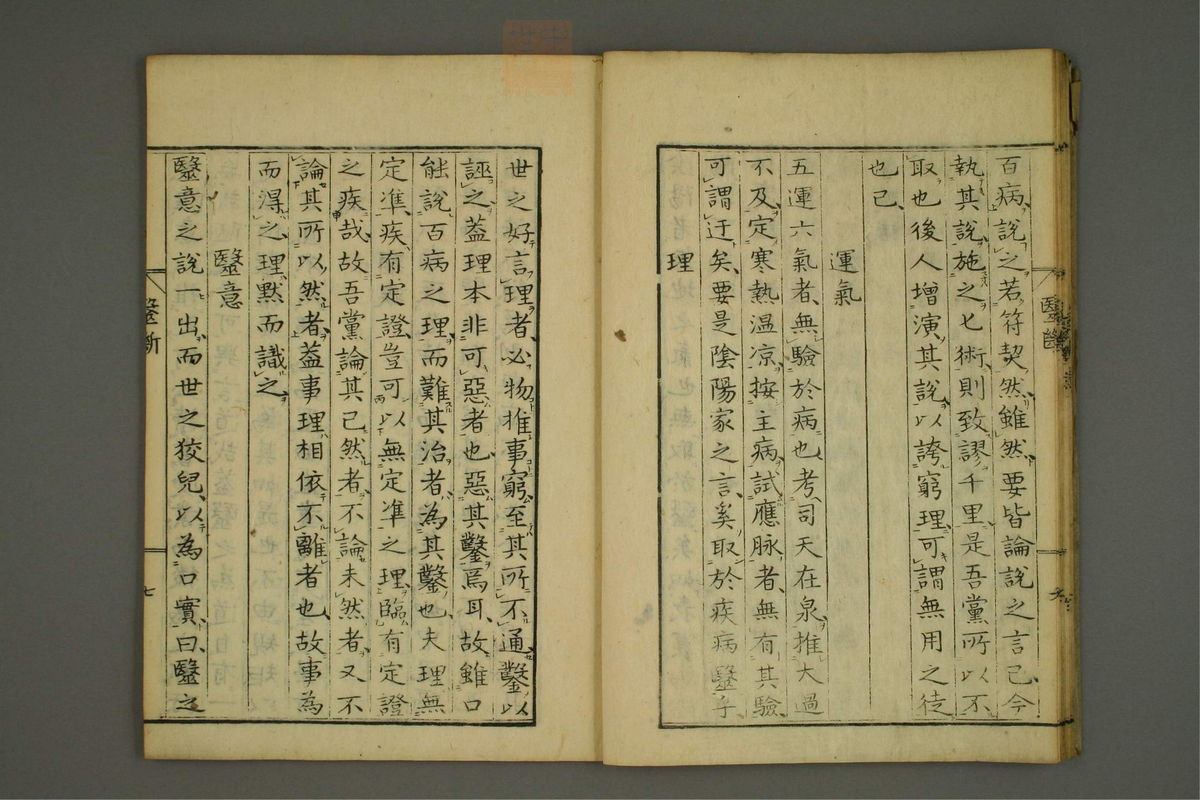 百病說之若符契然雖然要皆論說之言已今
執其說施之匕術則致謬千里是吾黨所以不
取也後人增演其說以誇窮理可謂無用之徒
也已
運氣
五運六氣者無驗於病也考司天在泉推大過
不及定寒熱温凉按主病試應脉者無有其驗
可謂迂矣要是陰陽家之言奚取於疾病毉乎
理
世之好言理者必物推事窮至其所不通鑿以
誣之蓋理本非可惡者也惡其鑿焉耳故雖口
能說百病之理而難其治者為其鑿也夫理無
定準疾有定證豈可以無定準之理臨有定證
之疾哉故吾黨論其已然者不論未然者又不
論其所以然者蓋事理相依不離者也故事為
而得之理黙而識之
毉意
毉意之說一出而世之狡兒以為口實曰毉之
毉斷
七